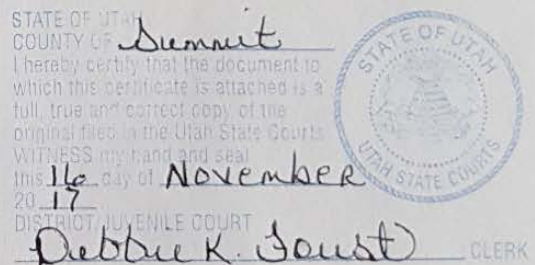 STATE OF UTAH
COUNTY OF Summit
I hereby certify that the document to
which this certificate is attached is a
full, true and correct copy of the
original filed in the Utah State Courts
WITNESS my hand and seal
this 16 day of November
20 17
DISTRICT/JUVENILE COURT
Debbie K. Foust CLERK
STATE OF UTAH
UTAH STATE COURTS